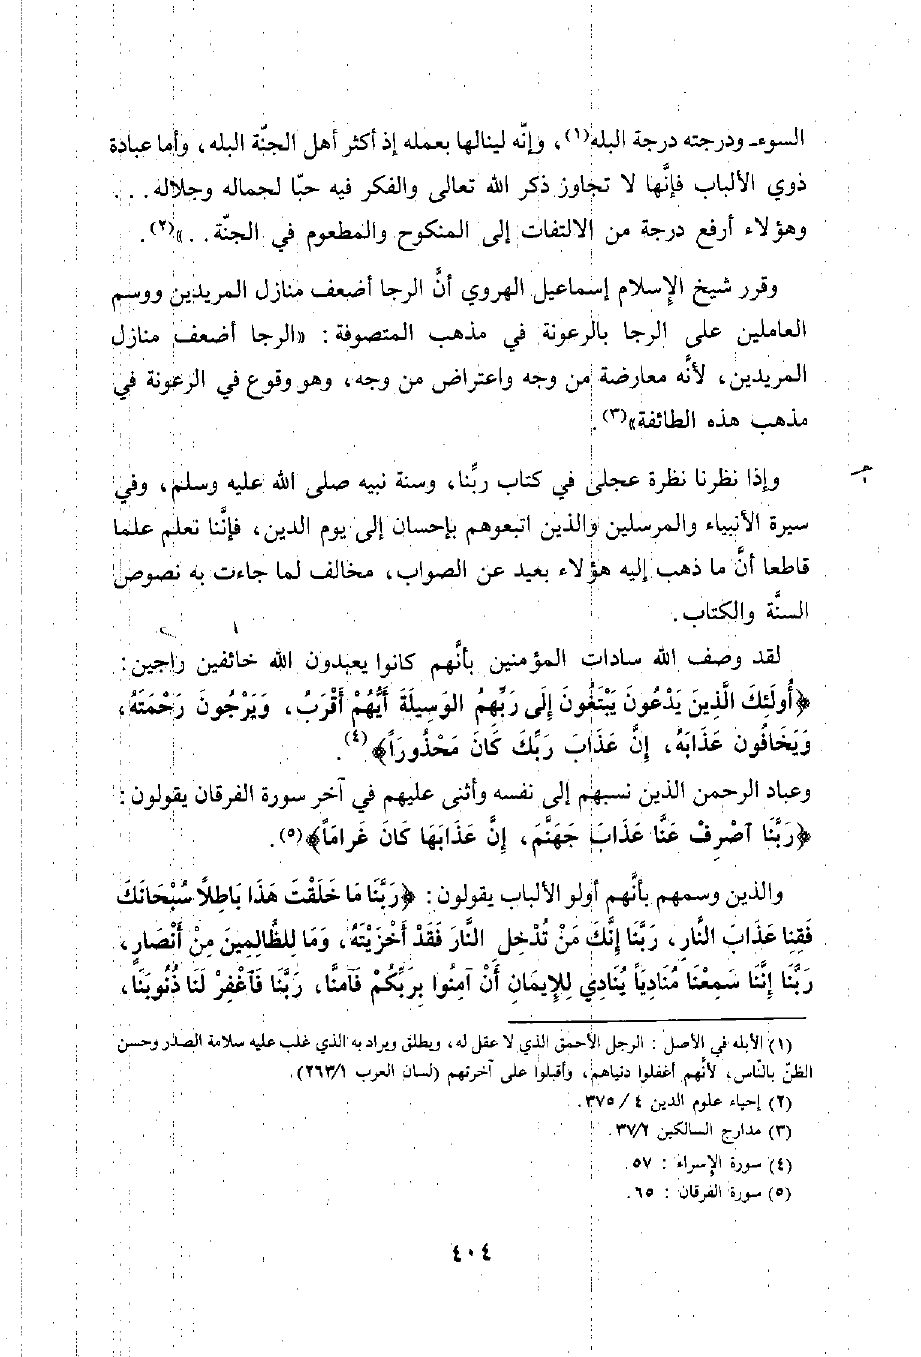 السوء۔ ودرجته درجة البله(١)، وإنّه لينالها بعمله إذ أكثر أهل الجنّة البله، وأما عبادة
ذوي الألباب فإنَّها لا تجاوز ذكر الله تعالى والفكر فيه حبّا لجماله وجلاله...
وهؤلاء أرفع درجة من الالتفات إلى المنكوح والمطعوم في الجنّة..»(٢).
وقرر شيخ الإسلام إسماعيل الهروي أنَّ الرجا أضعف منازل المريدين ووسم
العاملين على الرجا بالرعونة في مذهب المتصوفة: «الرجا أضعف منازل
المريدين، لأنَّه معارضة من وجه واعتراض من وجه، وهو وقوع في الرعونة في
مذهب هذه الطائفة»(٣).
وإذا نظرنا نظرة عجلى في كتاب ربِّنا، وسنة نبيه صلى الله عليه وسلم، وفي
سيرة الأنبياء والمرسلين والذين اتبعوهم بإحسان إلى يوم الدين، فإنَّنا نعلم علما
قاطعا أنَّ ما ذهب إليه هؤلاء بعيد عن الصواب، مخالف لما جاءت به نصوص
السنَّة والكتاب.
لقد وصف الله سادات المؤمنين بأنَّهم كانوا يعبدون الله خائفين راجين:
﴿أُولَئِكَ الَّذِينَ يَدْعُونَ يَبْتَغُونَ إِلَى رَبِّهِمُ الوَسِيلَةَ أَيُّهُمْ أَقْرَبُ، وَيَرْجُونَ رَحْمَتَهُ،
وَيَخَافُون عَذَابَهُ، إِنَّ عَذَابَ رَبِّكَ كَانَ مَحْذُوراً﴾(٤).
وعباد الرحمن الذين نسبهم إلى نفسه وأثنى عليهم في آخر سورة الفرقان يقولون:
﴿رَبَّنَا آصْرِفْ عَنَّا عَذَابَ جَهَنَّمَ، إِنَّ عَذَابَهَا كَانَ غَرَاماً﴾(٥).
والذين وسمهم بأنَّهم أولو الألباب يقولون: ﴿رَبَّنَا مَا خَلَقْتَ هَذَا بَاطِلاً سُبْحَانَكَ
فَقِنَا عَذَابَ النَّارِ، رَبَّنَا إِنَّكَ مَنْ تُدْخِلِ النَّارَ فَقَدْ أَخْزَيْتَهُ، وَمَا لِلظَّالِمِينَ مِنْ أَنْصَارٍ،
رَبَّنَا إِنَّنَا سَمِعْنَا مُنَادِياً يُنَادِي لِلإِيمَانِ أَنْ آمِنُوا بِرَبِّكُمْ فَآمَنَّا، رَبَّنَا فَآغْفِرْ لَنَا ذُنُوبَنَا،
(١) الأبله في الأصل: الرجل الأحمق الذي لا عقل له، ويطلق ويراد به الذي غلب عليه سلامة الصدر وحسن
الظنّ بالنّاس، لأنَّهم أغفلوا دنياهم، وأقبلوا على آخرتهم (لسان العرب ٢٦٣/١).
(٢) إحياء علوم الدين ٤/ ٣٧٥.
(٣) مدارج السالكين ٣٧/٢.
(٤) سورة الإسراء: ٥٧.
(٥) سورة الفرقان: ٦٥.
٤٠٤